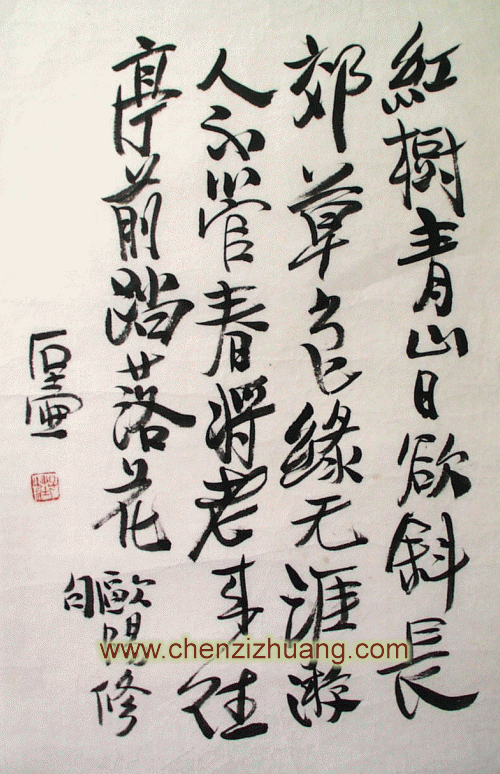 紅樹青山日欲斜長
郊草色緣无涯游
人不管春將老来往
亭前踏落花
歐陽修
句
石壷
www.chenzizhuang.com